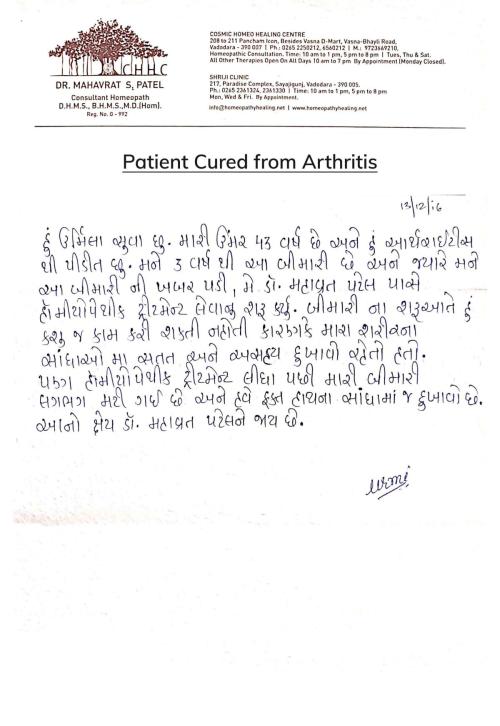 COSMIC HOMEO HEALING CENTRE
208 to 211 Pancham Icon, Besides Vasna D-Mart, Vasna-Bhayli Road,
Vadodara - 390 007 | Ph : 0265 2250212, 6560212 | M.: 9723669210,
Homeopathic Consultation. Time: 10 am to 1 pm, 5 pm to 8 pm | Tues, Thu & Sat.
All Other Therapies Open On All Days 10 am to 7 pm By Appointment (Monday Closed).
CHHC
DR. MAHAVRAT S. PATEL
Consultant Homeopath
D.H.M.S., B.H.M.S.,M.D.(Hom).
Reg. No. G - 992
SHRIJI CLINIC
217, Paradise Complex, Sayajigunj, Vadodara - 390 005.
Ph.: 0265 2361324, 2361330 | Time: 10 am to 1 pm, 5 pm to 8 pm
Mon, Wed & Fri. By Appointment.
info@homeopathyhealing.net | www.homeopathyhealing.net
Patient Cured from Arthritis
13/12/16
હું ઉર્મિલા સુવા છુ. મારી ઉંમર ૫૩ વર્ષ છે અને હું આર્થરાઈટીસ
થી પીડીત છુ. મને ૩ વર્ષ થી આ બીમારી છે અને જયારે મને
આ બીમારી ની ખબર પડી, મે ડૉ. મહાવ્રત પટેલ પાસે
હોમીયોપેથીક ટ્રીટમેન્ટ લેવાનુ શરૂ કર્યુ. બીમારી ના શરૂઆતે હું
કશુ જ કામ કરી શકતી નહોતી કારણકે મારા શરીરના
સાંધાઓ મા સતત અને અસહ્ય દુખાવો રહેતો હતો.
પણ હોમીયોપેથીક ટ્રીટમેન્ટ લીધા પછી મારી બીમારી
લગભગ મટી ગઈ છે અને હવે ફક્ત હાથના સાંધામાં જ દુખાવો છે.
આનો શ્રેય ડૉ. મહાવ્રત પટેલને જાય છે.
urmi